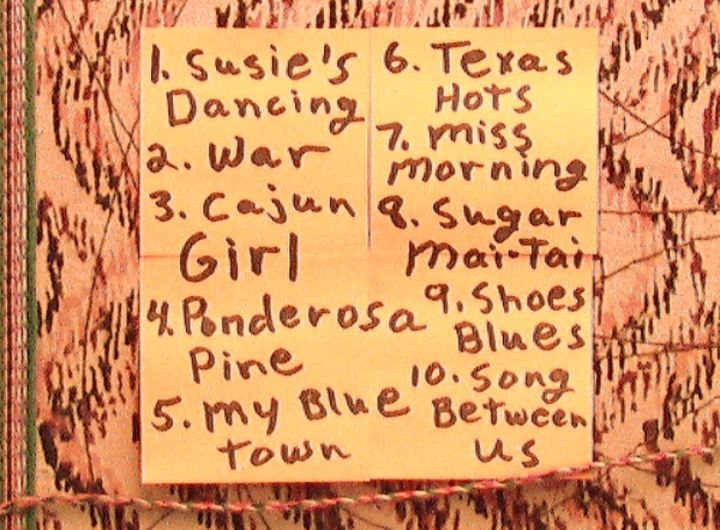 1. Susie's
Dancing
2. War
3. Cajun
Girl
4. Ponderosa
Pine
5. My Blue
Town
6. Texas
Hots
7. Miss
Morning
8. Sugar
Mai-Tai
9. Shoes
Blues
10. Song
Between
Us